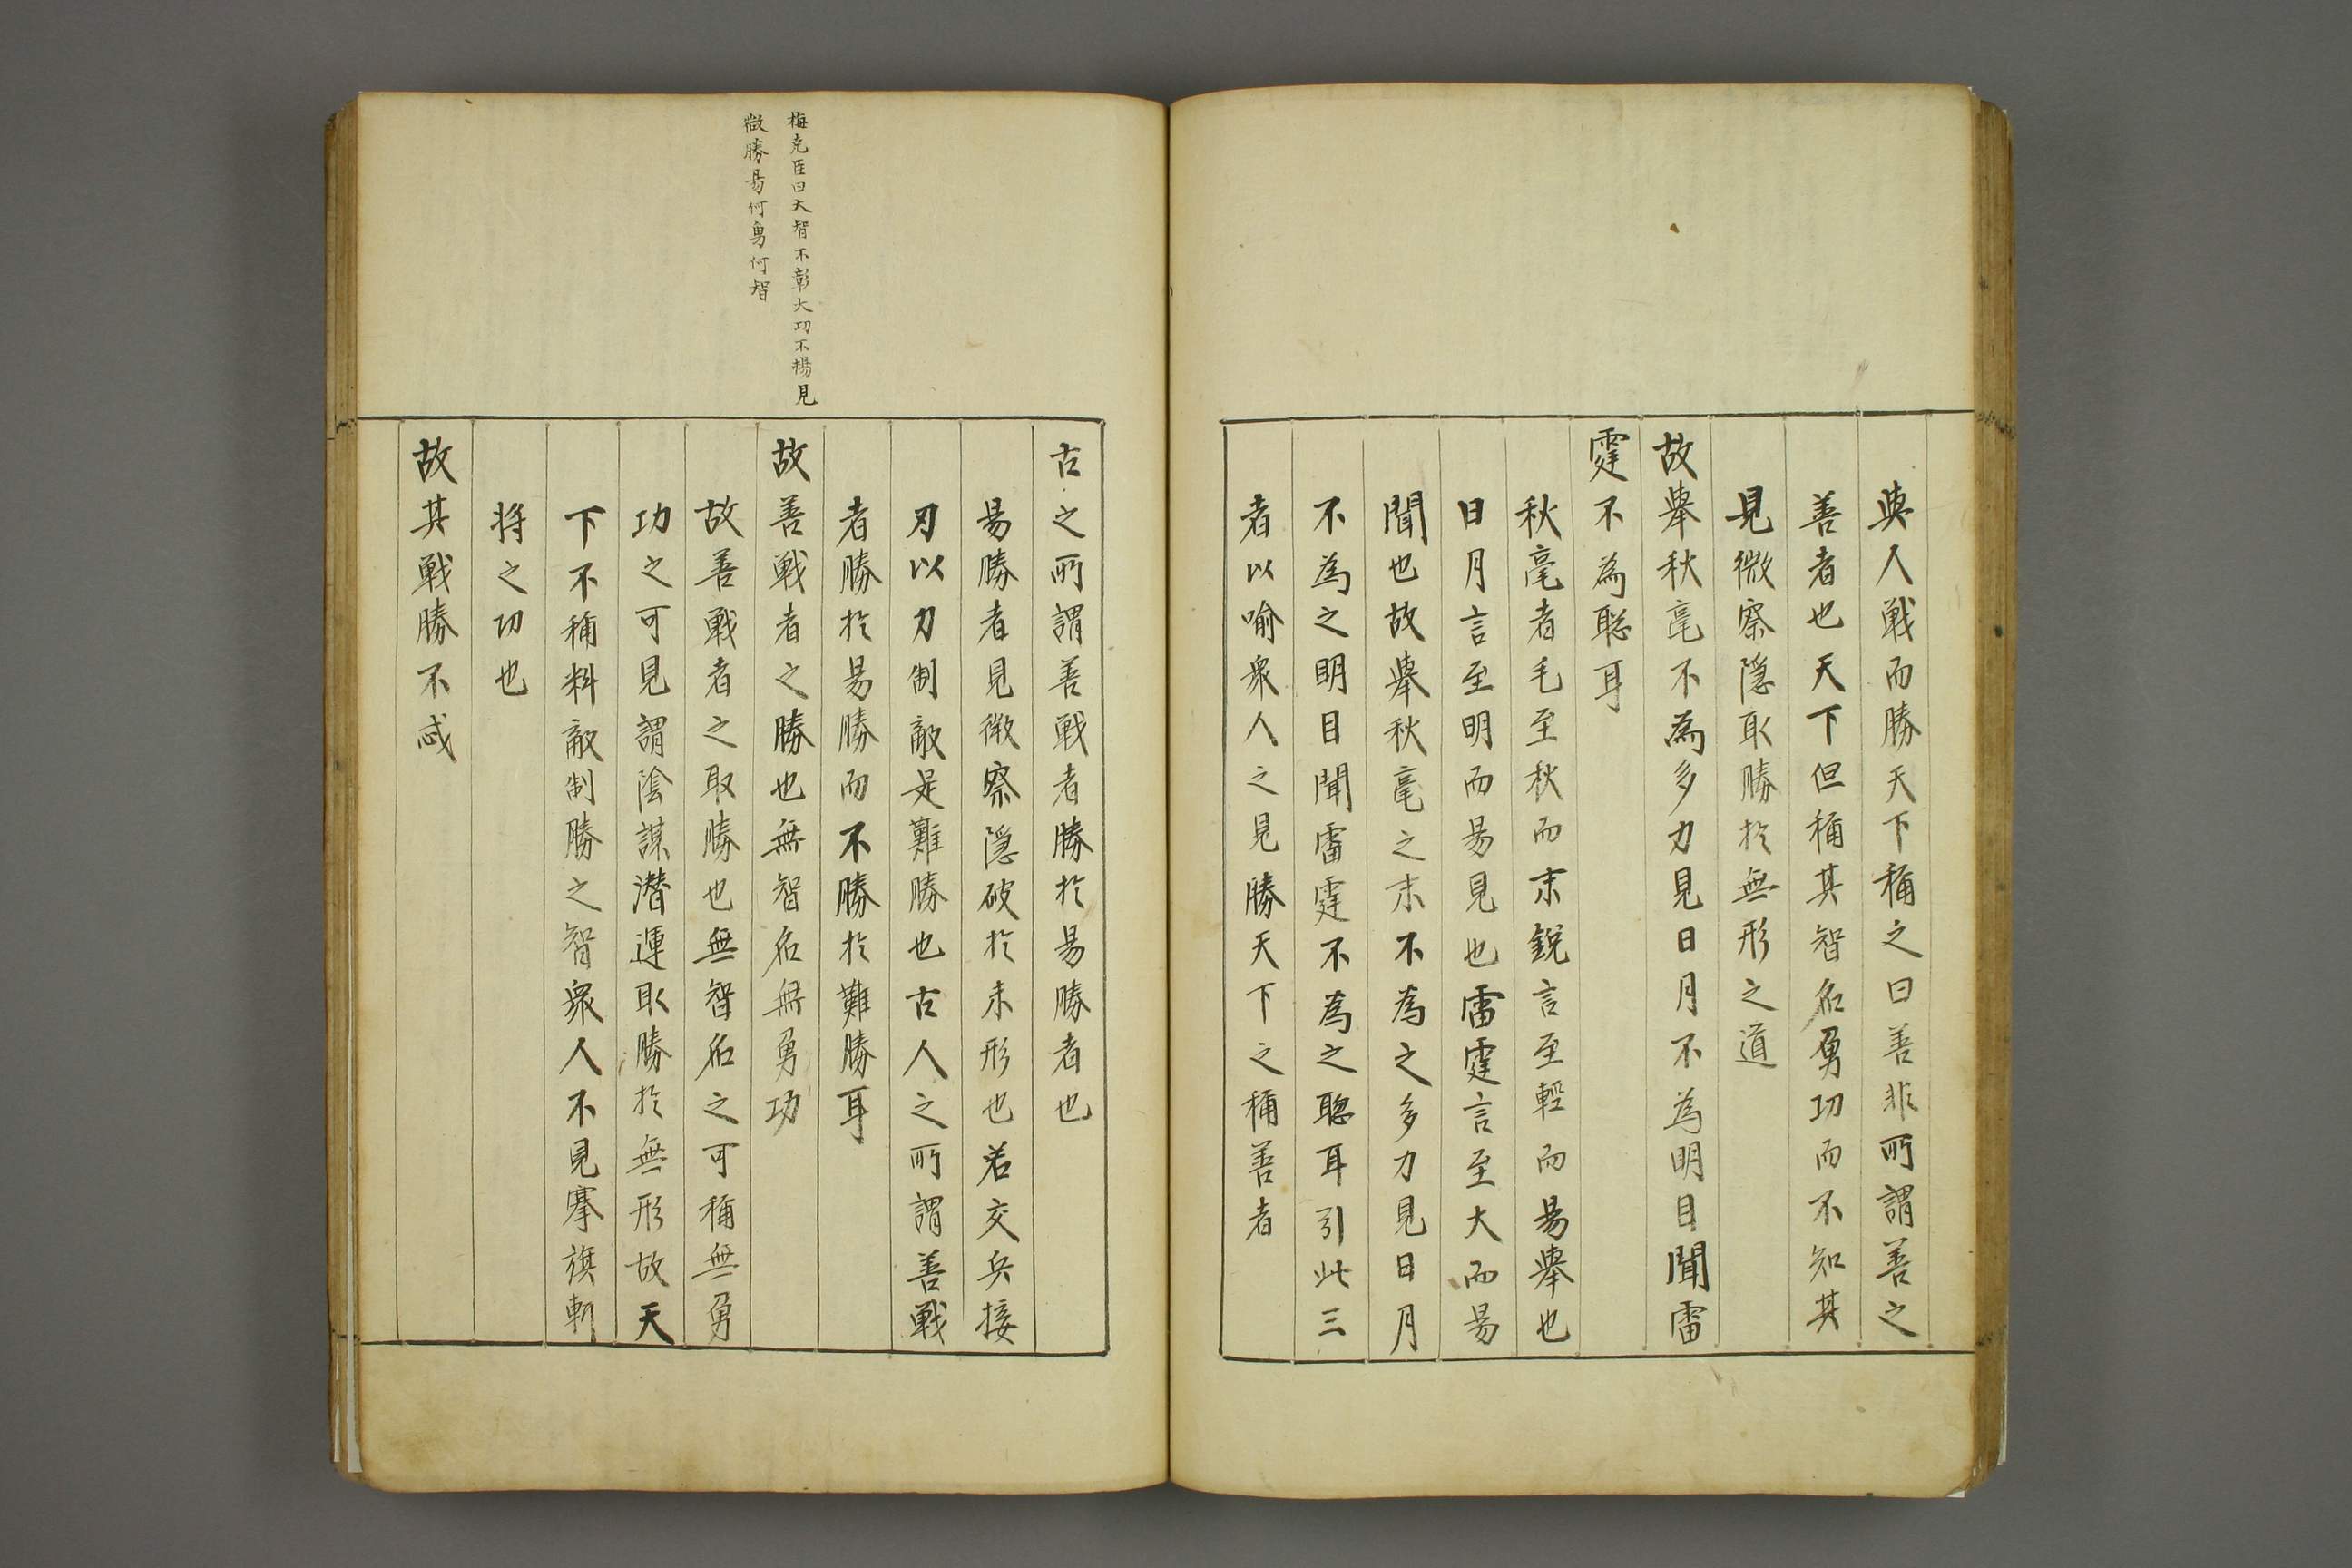 與人戦而勝天下稱之曰善非所謂善之
善者也天下但稱其智名勇功而不知其
見微察隠取勝於無形之道
故舉秋毫不為多力見日月不為明目聞雷
霆不為聡耳
秋毫者毛至秋而末鋭言至輕而易舉也
日月言至明而易見也雷霆言至大而易
聞也故舉秋毫之末不為之多力見日月
不為之明目聞雷霆不為之聡耳引此三
者以喻衆人之見勝天下之稱善者
梅尭臣曰大智不彰大功不揚見
微勝易何勇何智
古之所謂善戦者勝於易勝者也
易勝者見微察隠破於未形也若交兵接
刃以力制敵是難勝也古人之所謂善戦
者勝於易勝而不勝於難勝耳
故善戦者之勝也無智名無勇功
故善戦者之取勝也無智名之可稱無勇
功之可見謂陰謀潜運取勝於無形故天
下不稱料敵制勝之智衆人不見搴旗斬
将之功也
故其戦勝不忒